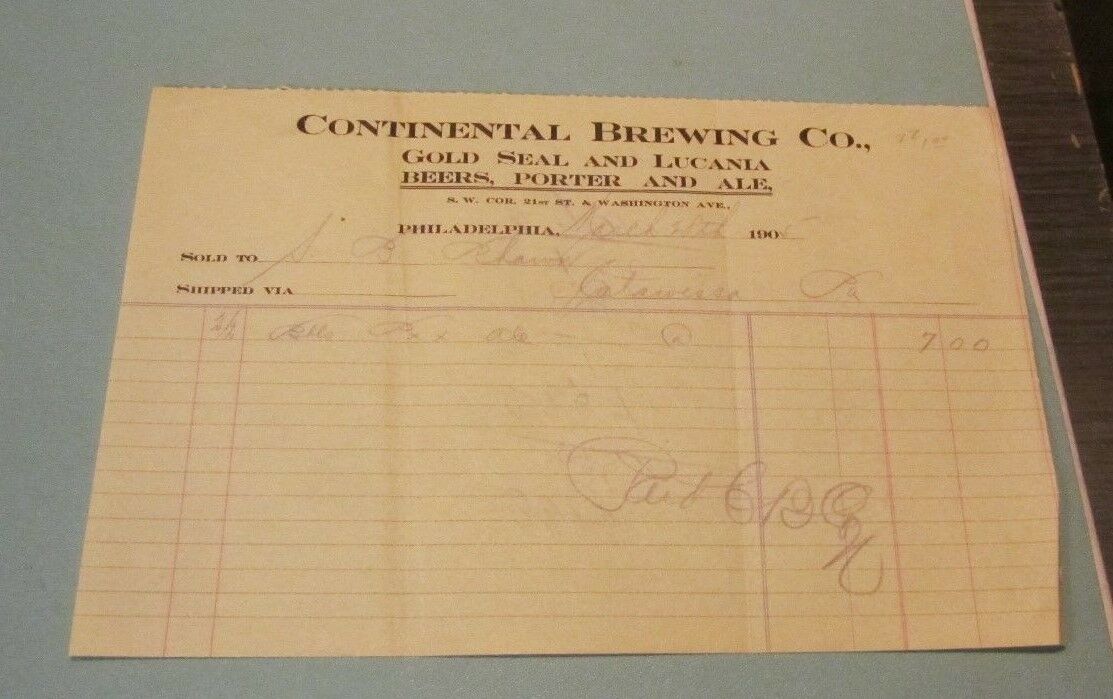 CONTINENTAL BREWING CO.,
GOLD SEAL AND LUCANIA
BEERS, PORTER AND ALE,
S. W. COR. 21ST ST. & WASHINGTON AVE.,
PHILADELPHIA, March 190
SOLD TO S. B.
SHIPPED VIA Catawissa Pa
Ale 7 00
Paid C B Co